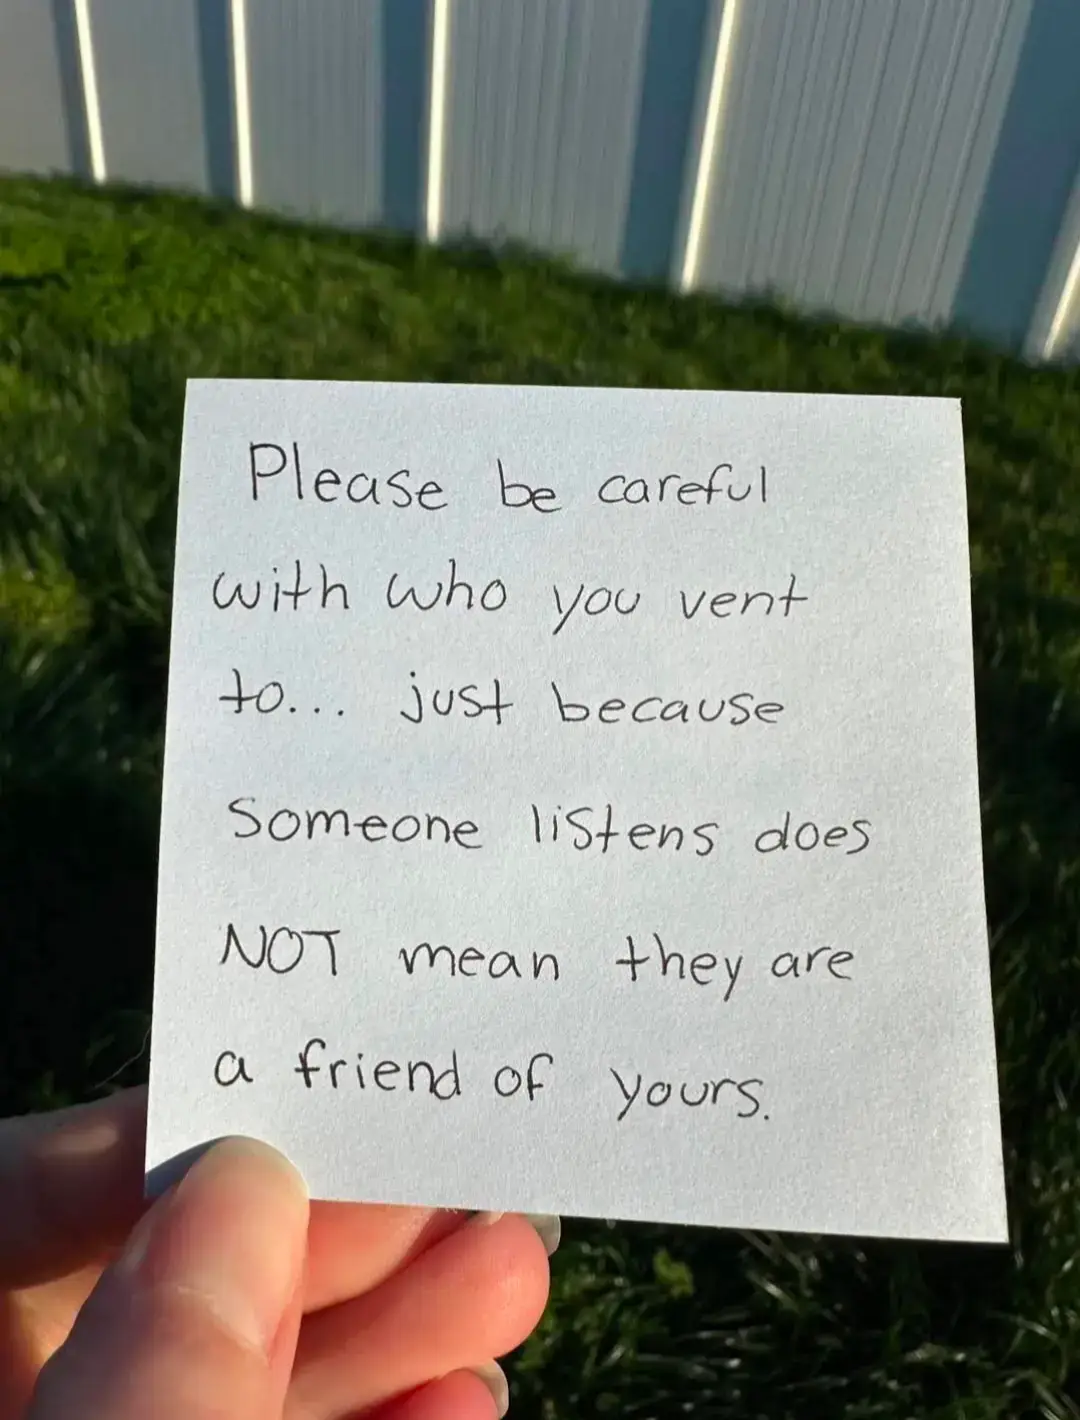 Please be careful
with who you vent
to... just because
Someone listens does
NOT mean they are
a friend of yours.